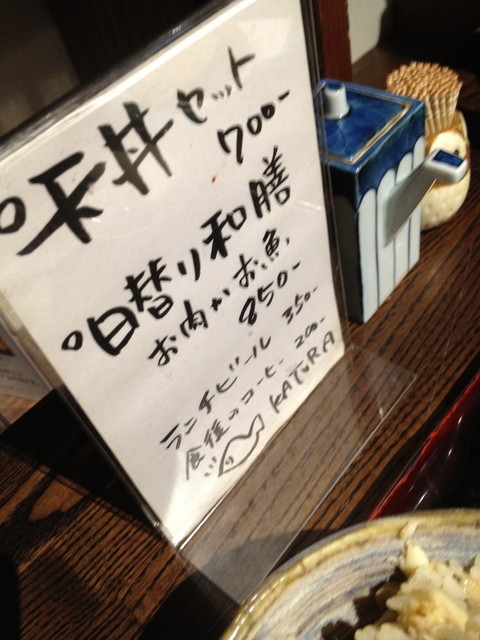 ○天丼セット
700-
○日替り和膳
お肉かお魚
850-
ランチビール 350-
食後のコーヒー 200-
KATURA